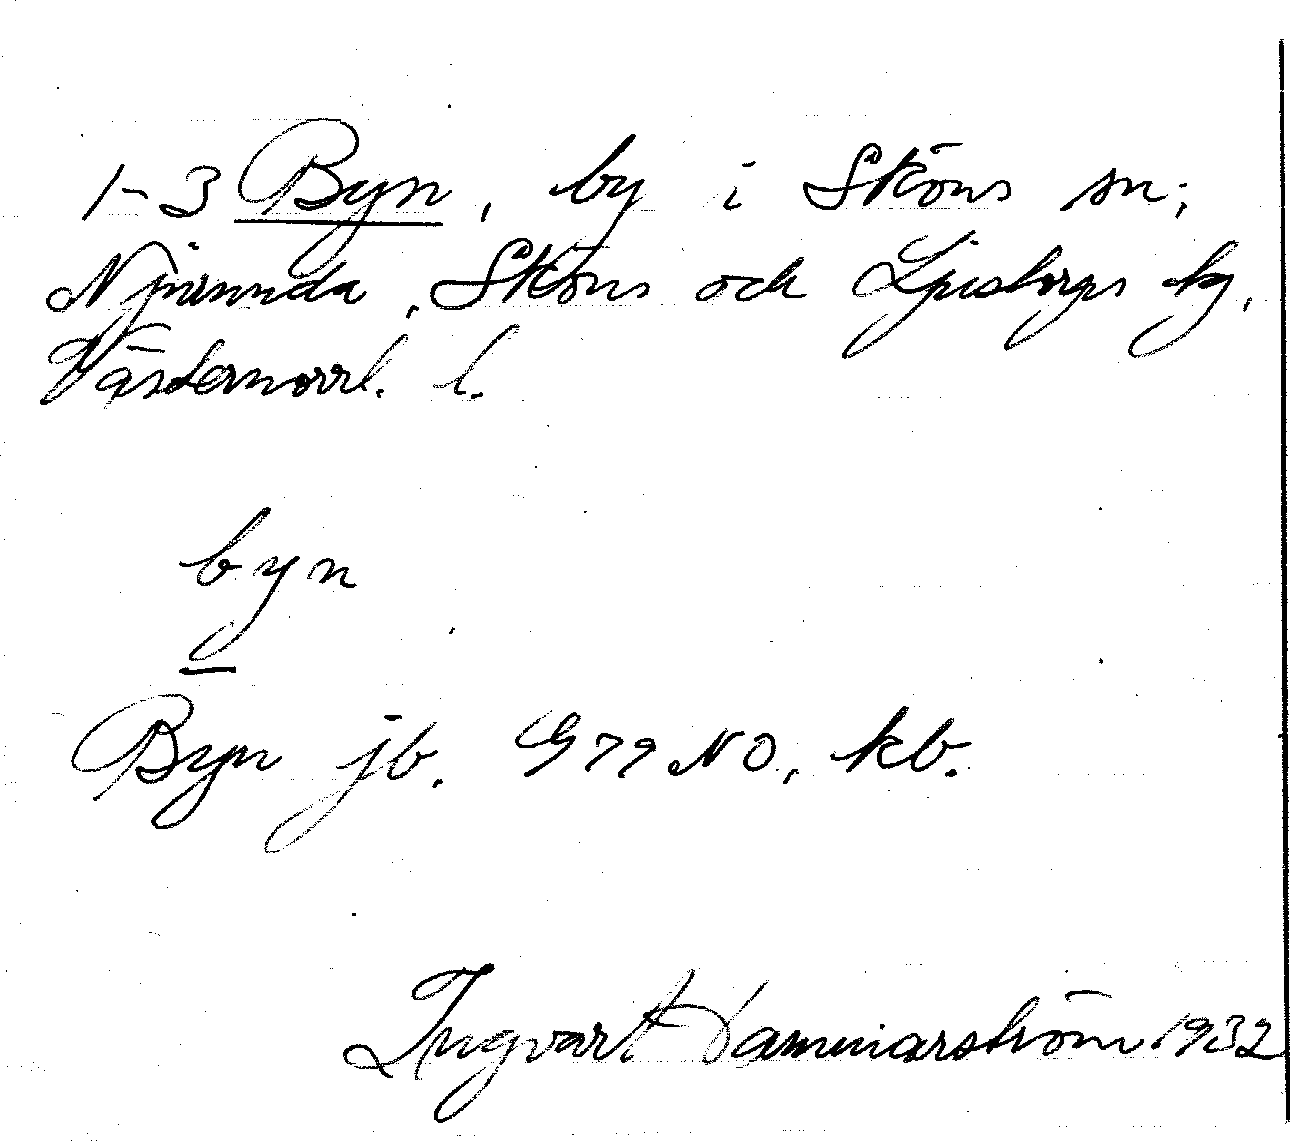 1-3 Byn, by i Sköns sn;
Njurunda, Sköns och Ljustorps tg,
Västernorrl. l.
byn
Byn jb. G 79 NO, kb.
Ingvart Hammarström 1932